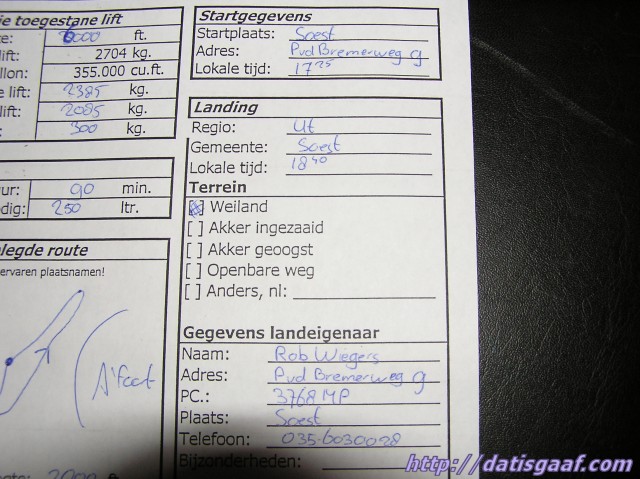 ie toegestane lift
te: 6000 ft.
lift: 2704 kg.
llon: 355.000 cu.ft.
e lift: 2385 kg.
lift: 2085 kg.
: 300 kg.
uur: 90 min.
dig: 250 ltr.
legde route
ervaren plaatsnamen!
A'foort
2000 ft
Startgegevens
Startplaats: Soest
Adres: Pvd Bremerweg 9
Lokale tijd: 17 25
Landing
Regio: Ut
Gemeente: Soest
Lokale tijd: 18 40
Terrein
[x] Weiland
[ ] Akker ingezaaid
[ ] Akker geoogst
[ ] Openbare weg
[ ] Anders, nl:
Gegevens landeigenaar
Naam: Rob Wiegers
Adres: Pvd Bremerweg 9
PC.: 3768 MP
Plaats: Soest
Telefoon: 035-6030028
Bijzonderheden:
http://datisgaaf.com